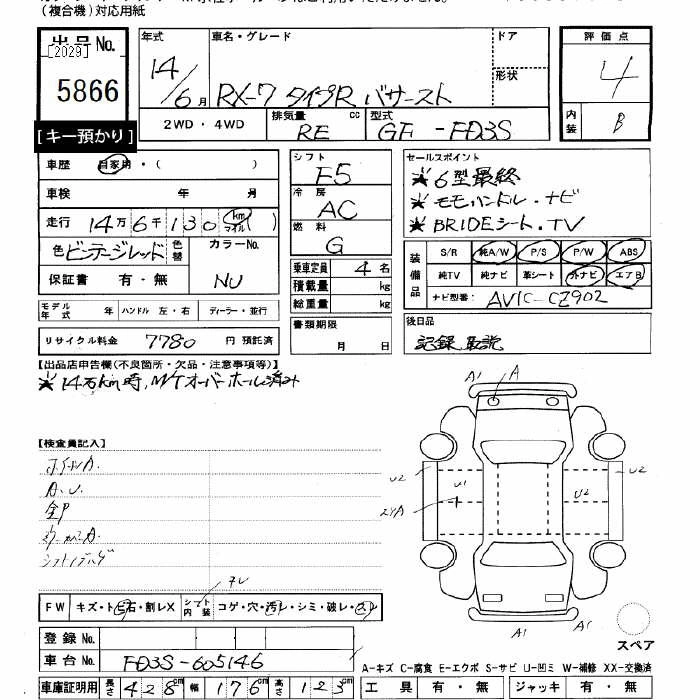 (複合機)対応用紙
出品No.
[2029]
5866
[キー預かり]
年式
14/6月
車名・グレード
RX-7 タイプR バサースト
ドア
形状
評価点
4
内装
B
2WD・4WD
排気量 cc
RE
型式
GF-FD3S
車歴 自家用・( )
車検 年 月
走行 14万6千130 km マイル ( )
色 ビンテージレッド 色替 カラーNo.
NU
保証書 有・無
モデル年式 年 ハンドル 左・右 ディーラー・並行
リサイクル料金 7780 円 預託済
シフト
F5
冷房
AC
燃料
G
乗車定員 4 名
積載量 kg
総重量 kg
書類期限
月 日
セールスポイント
★6型最終
★モモハンドル・ナビ
★BRIDEシート.TV
装備品
S/R 純A/W P/S P/W ABS
純TV 純ナビ 革シート 外ナビ エアB
ナビ型番: AVIC-CZ902
後日品
記録 取説
【出品店申告欄(不良箇所・欠品・注意事項等)】
★14万km時,M/Tオーバーホール済み
【検査員記入】
A.U.
A1 A
U2 U1 U2 U2
A1 A1
FW キズ・トビ石・割レX シフト内装 コゲ・穴・汚レ・シミ・破レ・スレ
登録No.
車台No. FD3S-605146
車庫証明用 長さ 428cm 幅 176cm 高さ 123cm
スペア
A-キズ C-腐食 E-エクボ S-サビ U-凹ミ W-補修 XX-交換済
工具 有・無 ジャッキ 有・無